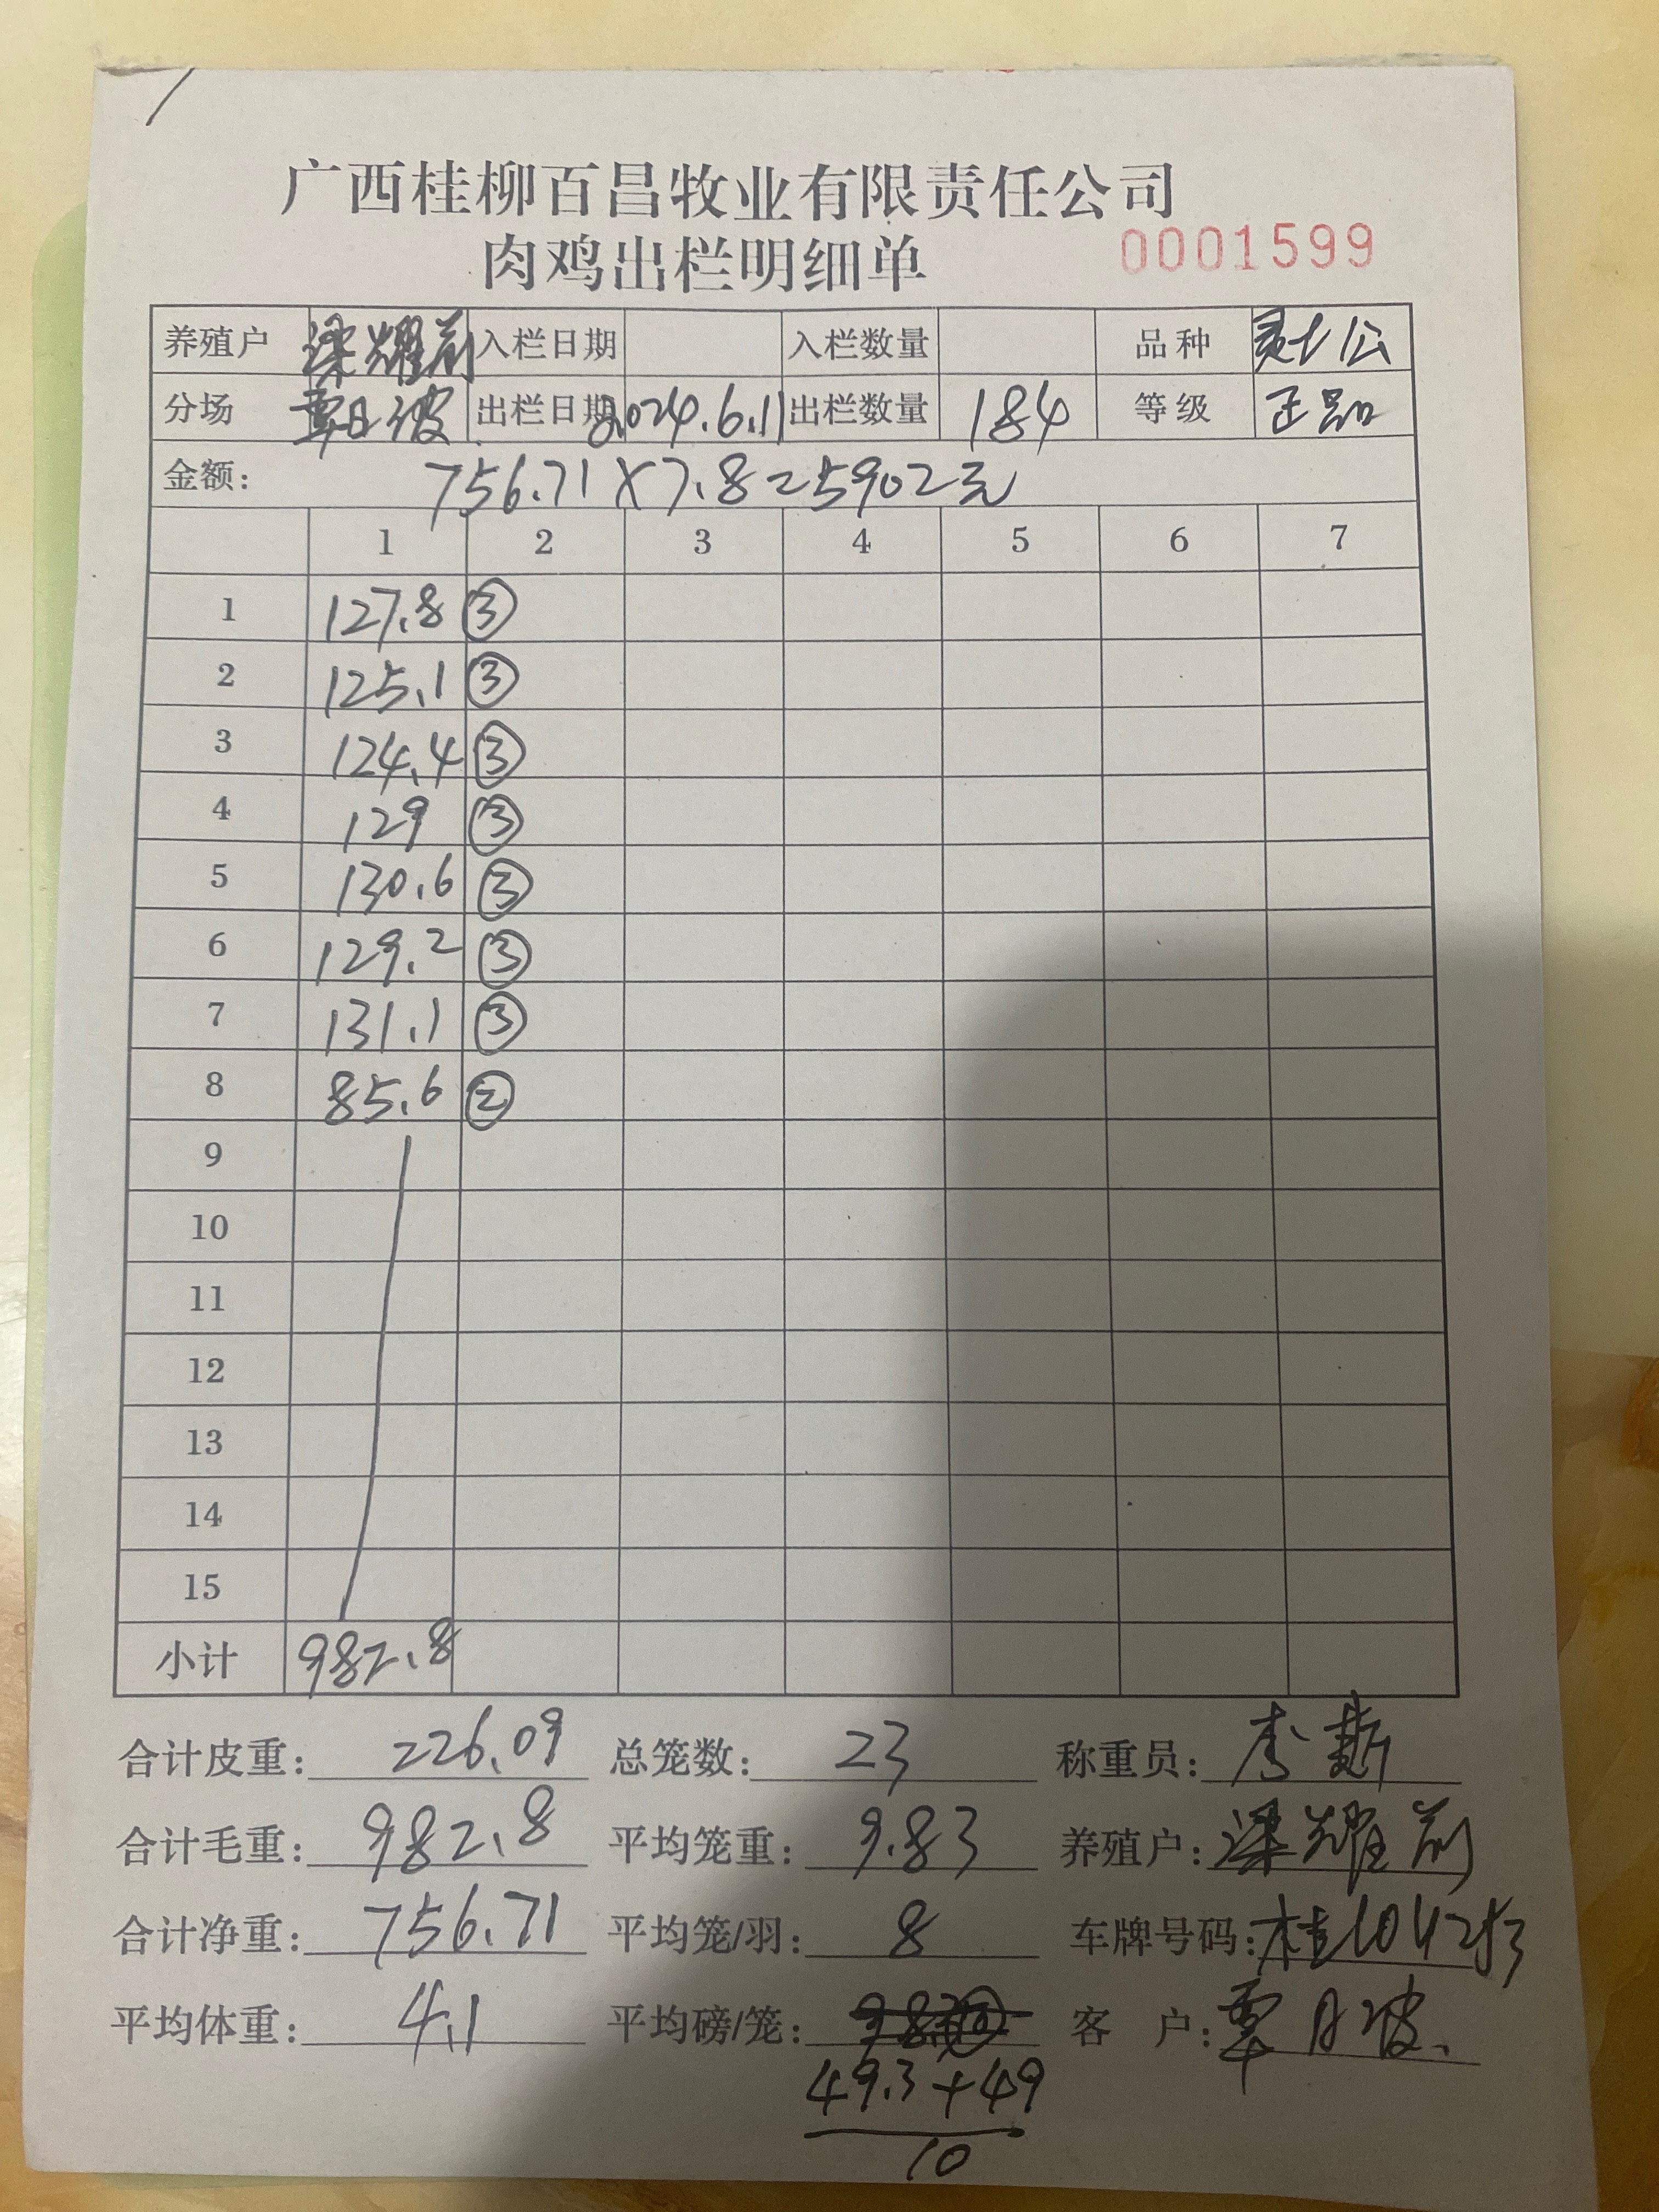 广西桂柳百昌牧业有限责任公司
肉鸡出栏明细单 0001599
养殖户 梁耀前 入栏日期 入栏数量 品种 公
分场 覃日波 出栏日期 2024.6.11 出栏数量 184 等级 正品
金额: 756.71×7.8=5902元
1 2 3 4 5 6 7
1 127.8 ③
2 125.1 ③
3 124.4 ③
4 129 ③
5 130.6 ③
6 129.2 ③
7 131.1 ③
8 85.6 ②
9
10
11
12
13
14
15
小计 982.8
合计皮重: 226.09 总笼数: 23 称重员: 李
合计毛重: 982.8 平均笼重: 9.83 养殖户: 梁耀前
合计净重: 756.71 平均笼/羽: 8 车牌号码: 桂
平均体重: 4.1 平均磅/笼: 客 户: 覃日波
49.3+49
10